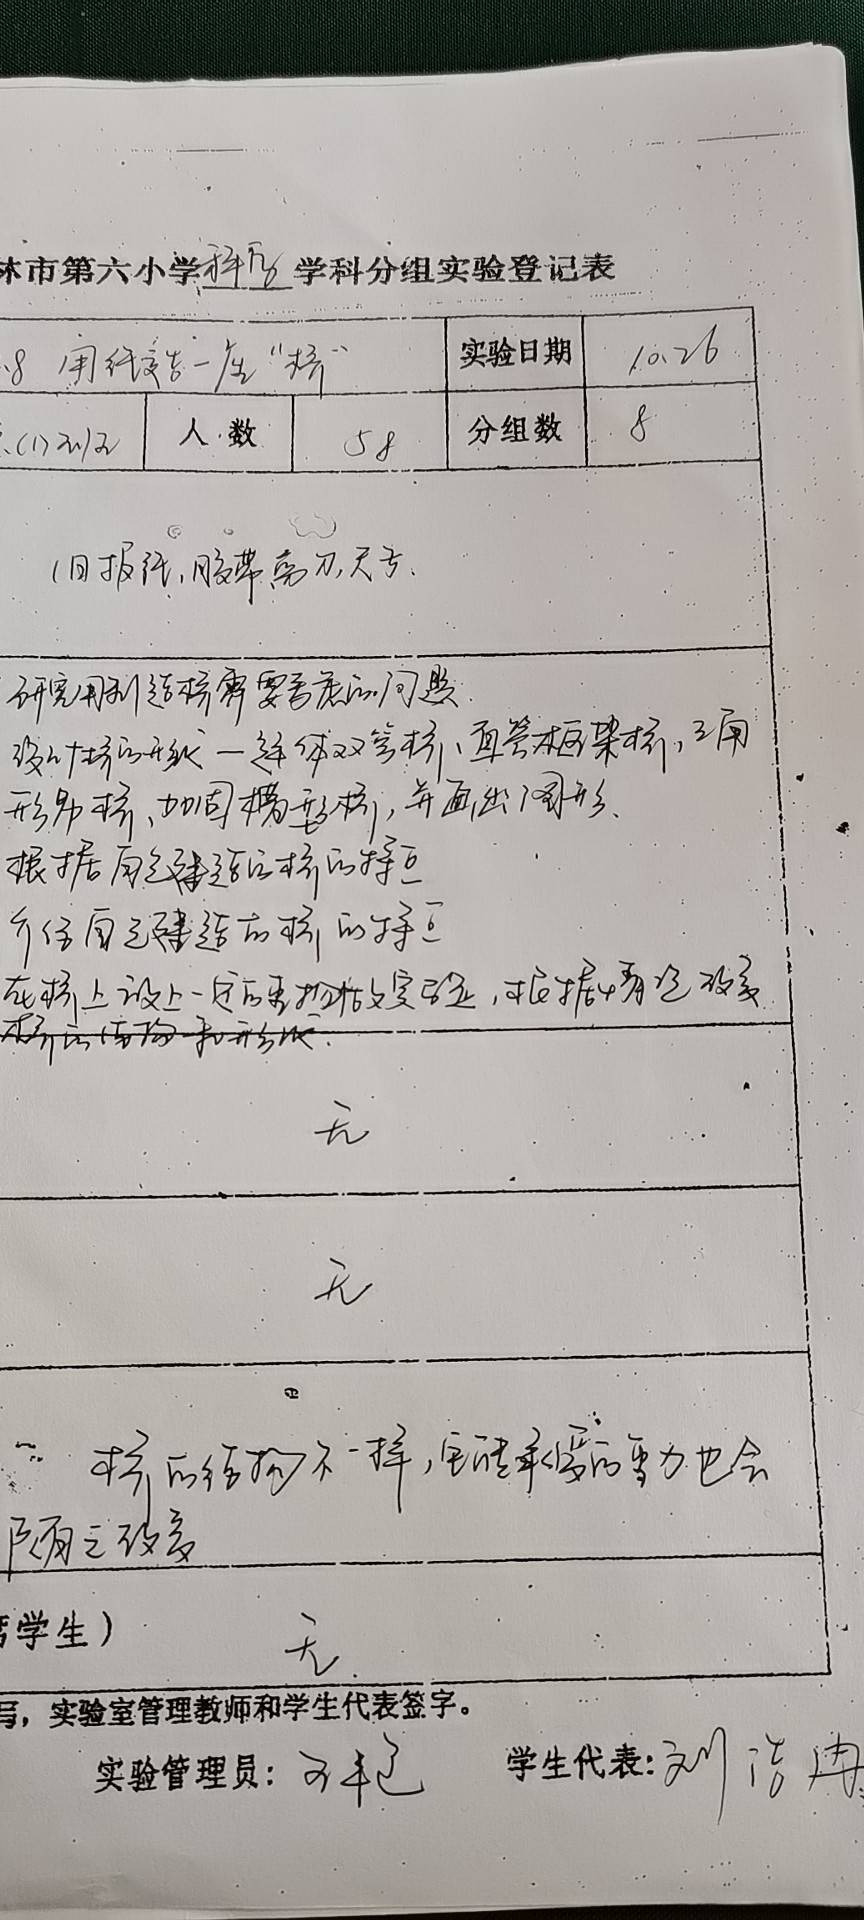 林市第六小学科学学科分组实验登记表
.8 用纸造一座“桥” 实验日期 10.26
人数 58 分组数 8
旧报纸,胶带剪刀,天平.
研究用到造桥需要考虑的问题
设计桥的形状一整体双管桥、直管框架桥,三角
形吊桥、加固模型桥,并画出图形、
根据自己建造的桥的特点
介绍自己建造的桥的特点
在桥上放上一定的重物做实验,根据情况改变
桥的结构和形状.
无
无
桥的结构不一样,它能承受的重力也会
随之改变
学生) 无.
写,实验室管理教师和学生代表签字。
实验管理员: 学生代表:刘